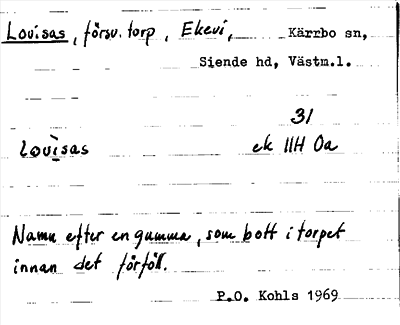 Lovisas, försv. torp, Ekevi, Kärrbo sn,
Siende hd, Västm.l.
31
lovìsas ek IIH Oa
Namn efter en gumma, som bott i torpet
innan det förföll.
P.O. Kohls 1969